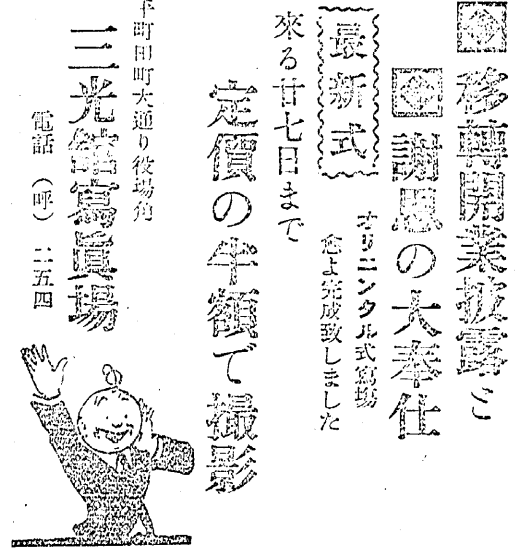 移轉開業披露と
謝恩の大奉仕
最新式
オリエンタル式寫場
愈よ完成致しました
來る廿七日まで
定價の半額で撮影
平町田町大通り役場角
三光舘寫眞場
電話（呼）二五四